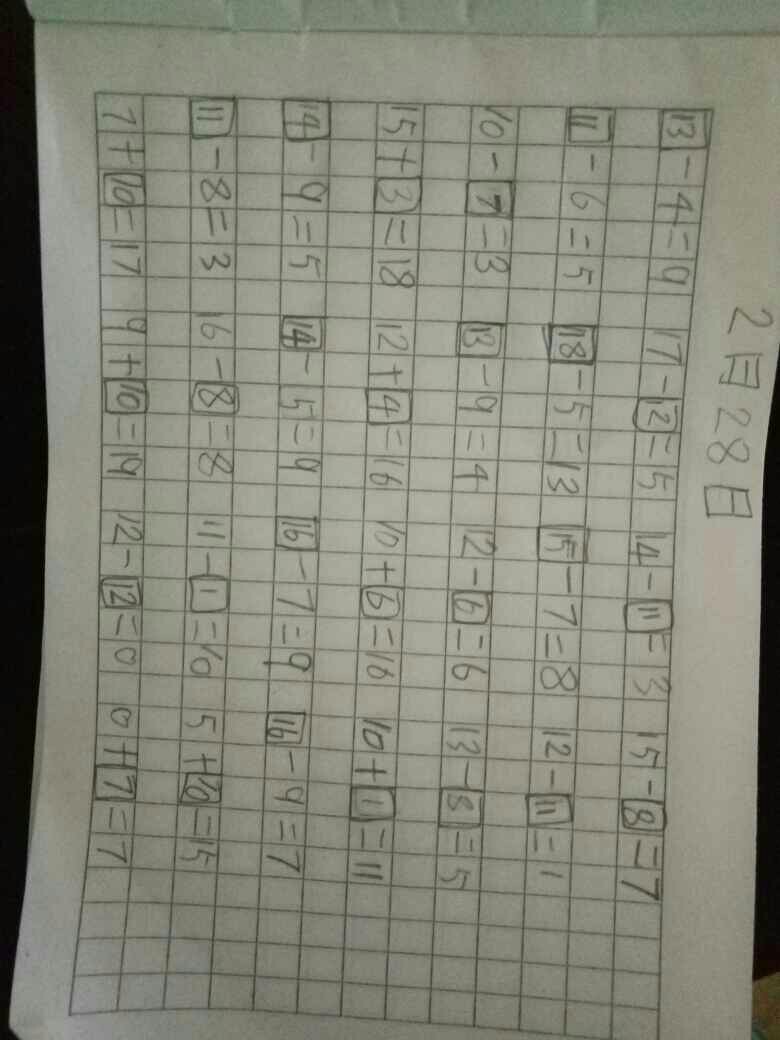 2月28日
13-4=9 17-12=5 14-11=3 15-8=7
11-6=5 18-5=13 15-7=8 12-11=1
10-7=3 13-9=4 12-6=6 13-8=5
15+3=18 12+4=16 10+6=16 10+1=11
14-9=5 14-5=9 16-7=9 16-9=7
11-8=3 16-8=8 11-1=10 5+10=15
7+10=17 9+10=19 12-12=0 0+7=7